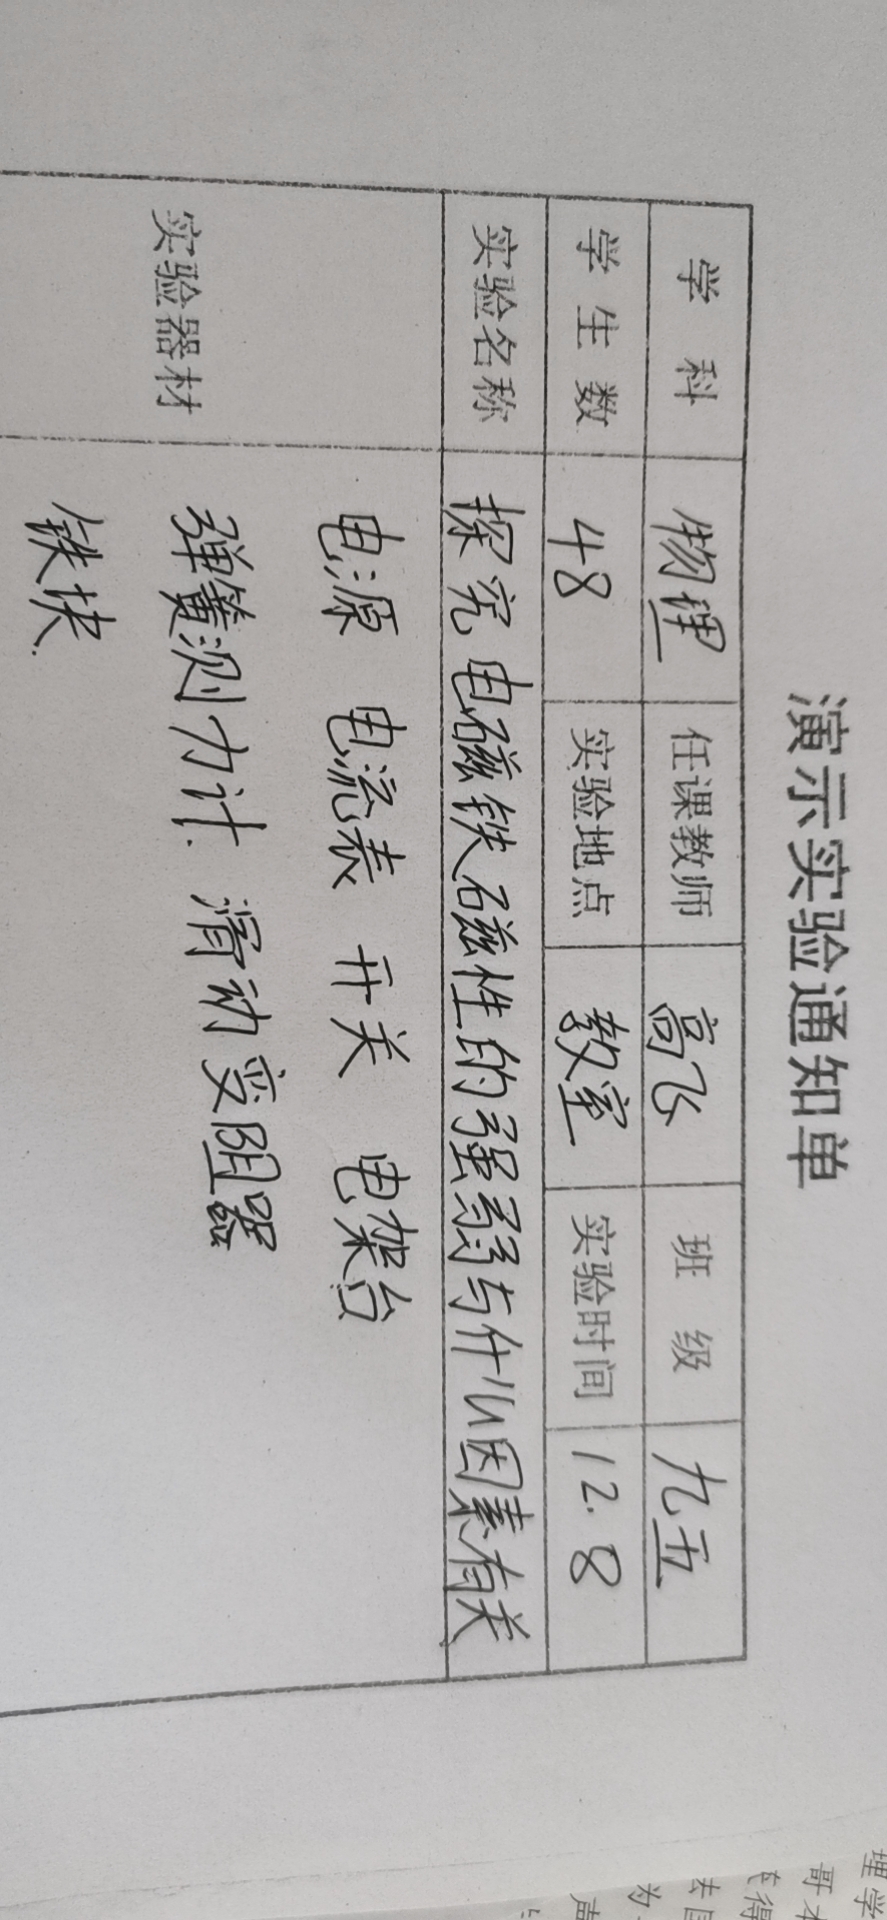 演示实验通知单
学科 物理 任课教师 高飞 班级 九五
学生数 48 实验地点 教室 实验时间 12.8
实验名称 探究电磁铁磁性的强弱与什么因素有关
实验器材 电源 电流表 开关 电架台
弹簧测力计 滑动变阻器
铁块
理学
哥本
得
法国
为
声